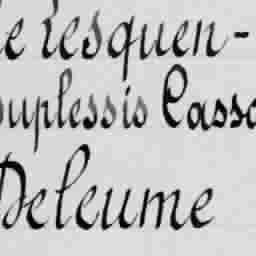 de Kesquen-
Duplessis Casso
Deleume